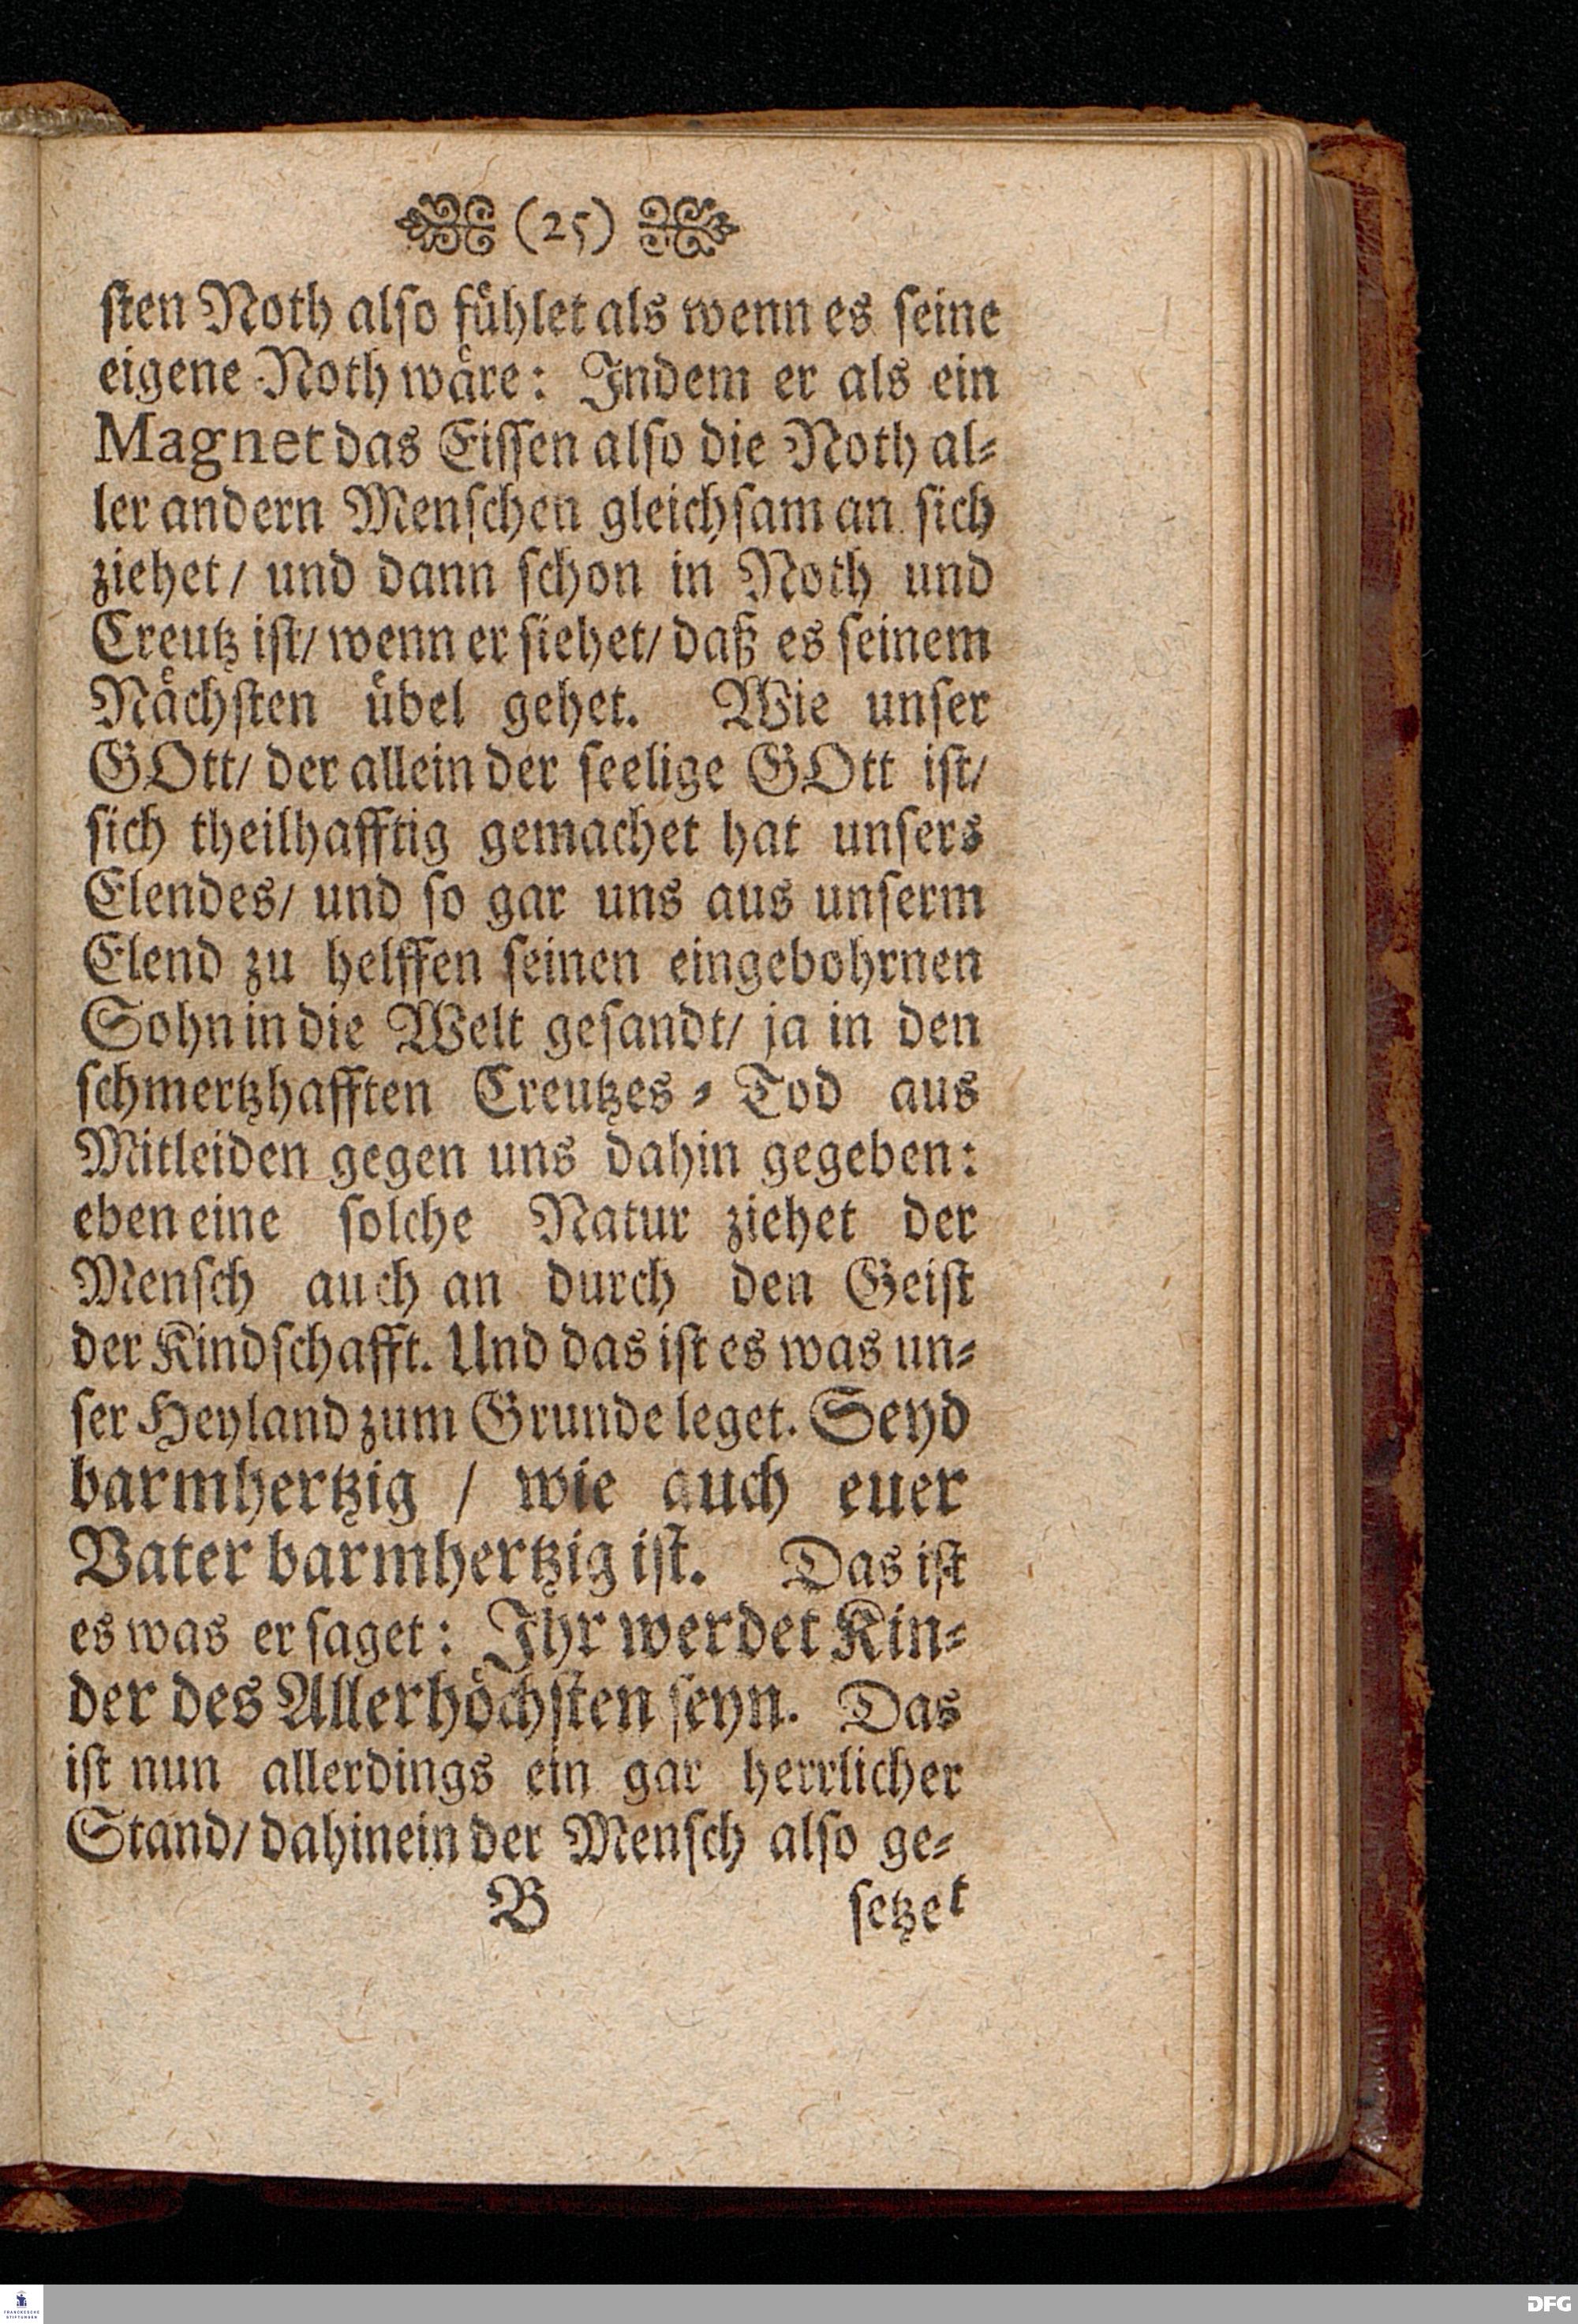 (25)
ſten Noth alſo fuͤhlet als wenn es ſeine
eigene Noth waͤre: Indem er als ein
Magnet das Eiſſen alſo die Noth al⸗
ler andern Menſchen gleichſam an ſich
ziehet/ und dann ſchon in Noth und
Creutz iſt/ wenn er ſiehet/ daß es ſeinem
Naͤchſten uͤbel gehet. Wie unſer
GOtt/ der allein der ſeelige GOtt iſt/
ſich theilhafftig gemachet hat unſers
Elendes/ und ſo gar uns aus unſerm
Elend zu helffen ſeinen eingebohrnen
Sohn in die Welt geſandt/ ja in den
ſchmertzhafften Creutzes⸗Tod aus
Mitleiden gegen uns dahin gegeben:
eben eine ſolche Natur ziehet der
Menſch auch an durch den Geiſt
der Kindſchafft. Und das iſt es was un⸗
ſer Heyland zum Grunde leget. Seyd
barmhertzig / wie auch euer
Vater barmhertzig iſt. Das iſt
es was er ſaget: Ihr werdet Kin⸗
der des Allerhoͤchſten ſeyn. Das
iſt nun allerdings ein gar herrlicher
Stand/ dahinein der Menſch alſo ge⸗
B ſetzet
FRANCKESCHE
STIFTUNGEN
DFG